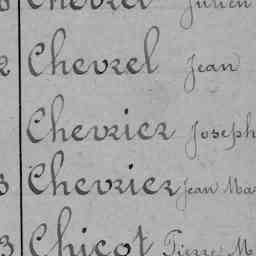 Chevrel Julien
2 Chevrel Jean
Chevrier Joseph
3 Chevrier Jean Mar
3 Chicot Pierre M